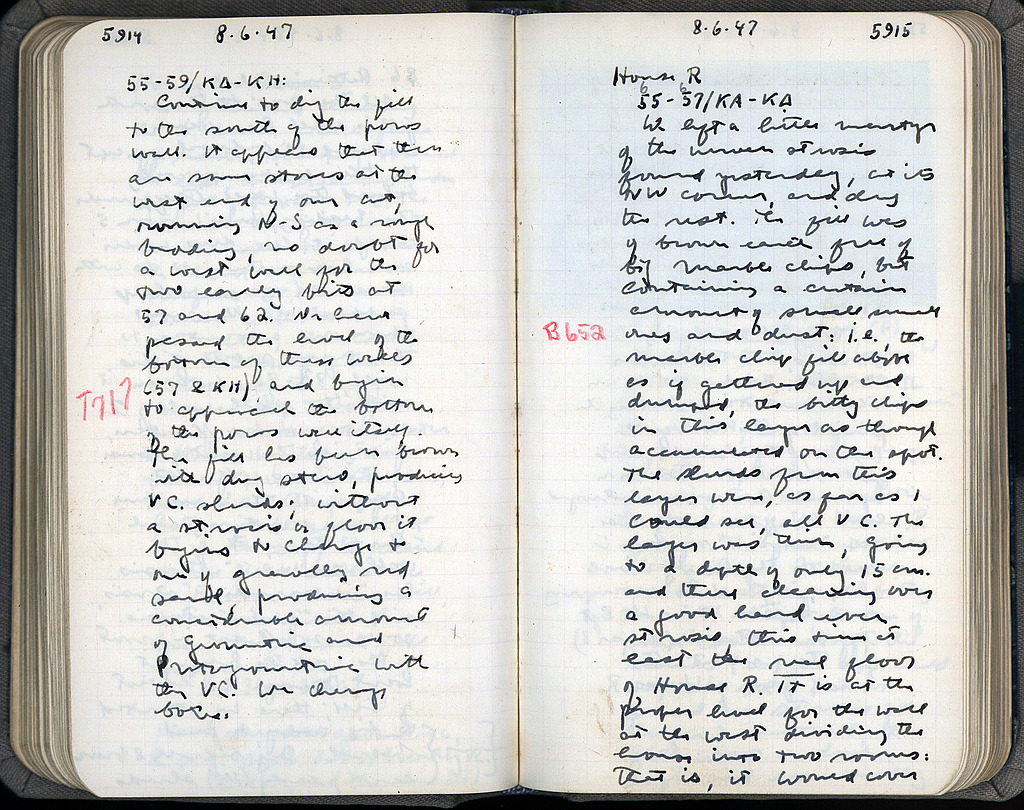 5914 8·6·47
55-59/ΚΔ-ΚΗ:
Continue to dig the fill
to the south of the poros
wall. It appears that there
are some stones at the
west end of our cut,
running N-S as a rough
bedding, no doubt for
a west wall for the
two early bits at
57 and 62. We have
passed the level of the
bottom of these walls
(57 & ΚΗ) and begin
T717
to approach the bottom
of the poros wall itself.
The fill has been brown
with dug stereo, producing
V C. sherds; without
a strosis or floor it
begins to change to
one of gravelly red
sand, producing a
considerable amount
of Geometric and
Protogeometric with
the VC. We change
boxes.
8·6·47 5915
House R
55-57/ΚΑ-ΚΔ
6 6
We left a little martyr
of the uneven strosis
found yesterday, at its
NW corner, and dug
the rest. The fill was
of brown earth free of
big marble chips, but
containing a certain
amount of small small
B652
ones and dust: i.e., the
marble chip fill above
as if gathered up and
dumped, the bitty chips
in this layer as though
accumulated on the spot.
The sherds from this
layer were, as far as I
could see, all V C. The
layer was thin, going
to a depth of only 15 cm.
and then cleaning over
a good hard even
strosis this time at
least the real floor
of House R. It is at the
proper level for the wall
at the west dividing the
house into two rooms:
that is, it would cover